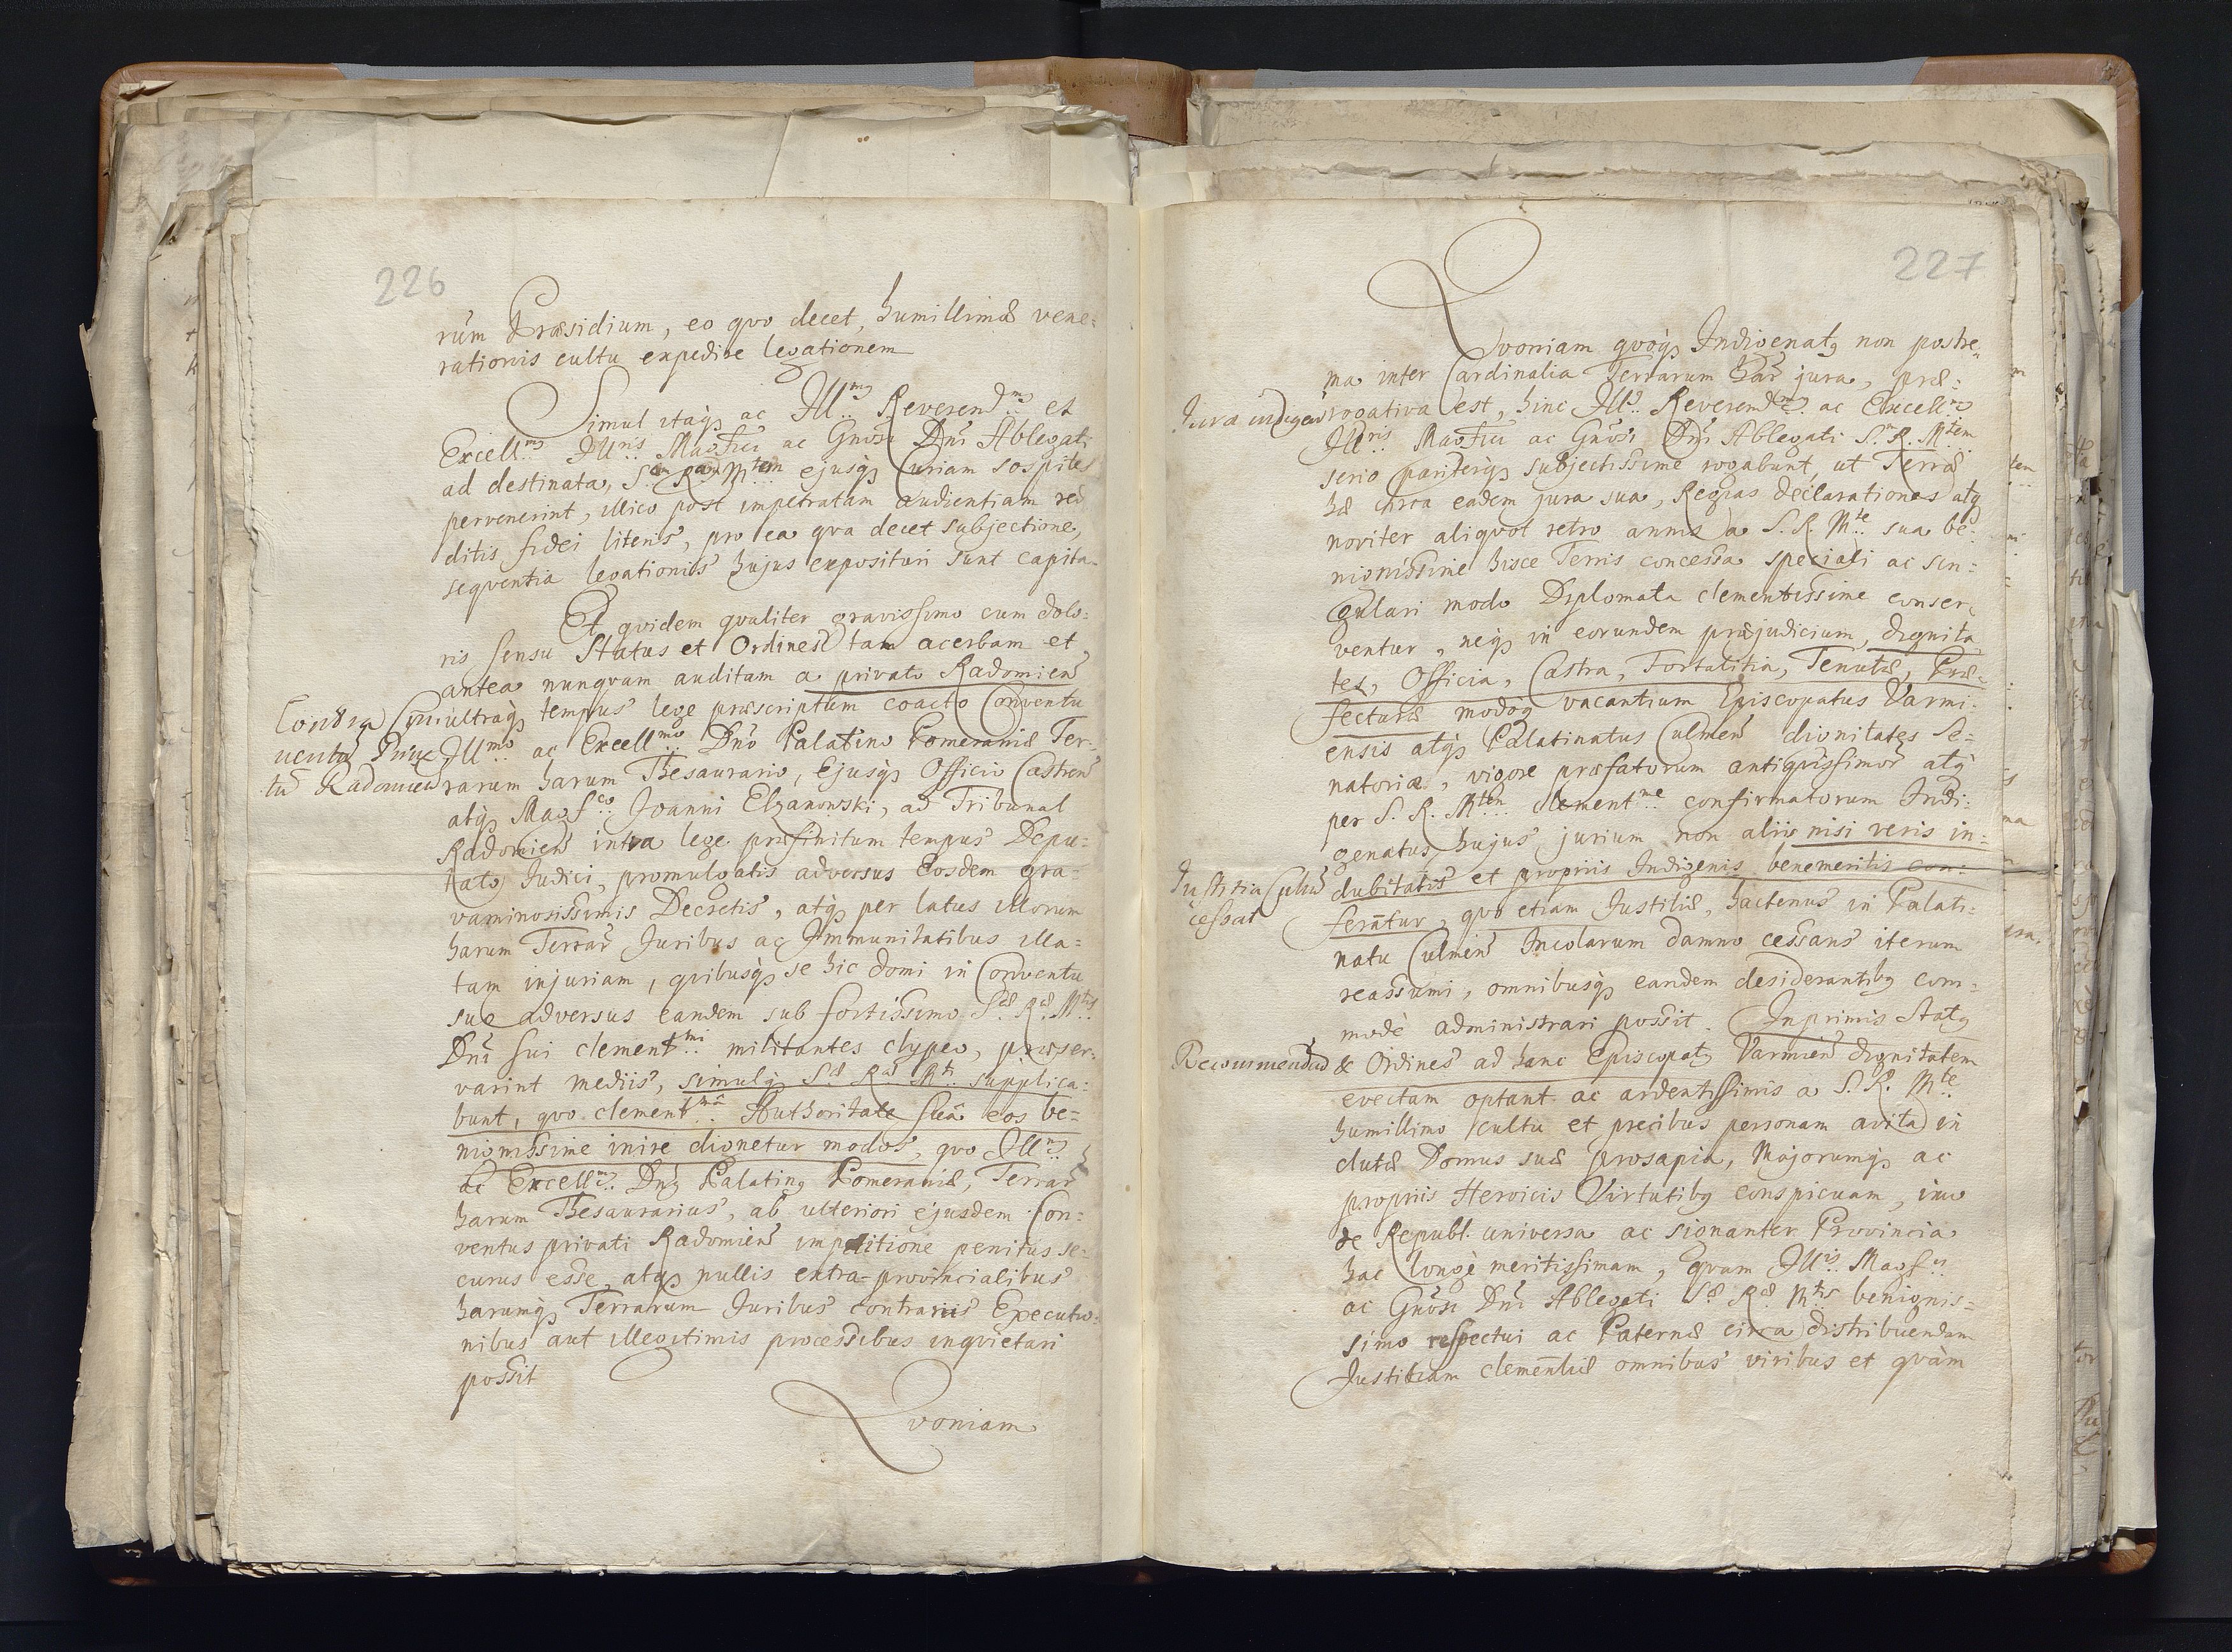 226
rum Præsidium, eo qvo decet, humillimæ vene=
rationis cultu expedire legationem
Simul itaq; ac Ill.mus Reverend.mus et
Excell.mus Ill.ris Magfici ac Gnosi Dni Ablegati
ad destinata, S.am R.am M.tem ejusq; Curiam sospites
pervenerint, illico post impetratam audientiam red
ditis fidei literis, pro ea qva decet subjectione,
seqventia legationis hujus exposituri sunt capita.
Et qvidem qvaliter gravissimo cum dolo=
ris sensu Status et Ordines tam acerbam et
antea nunqvam auditam a privato Radomien
ultraq; tempus lege præscriptum coacto Conventu
Contra Con
uentu Priua
tu Radomien
Ill.mo ac Excell.mo Dno Palatino Pomeraniæ Ter=
rarum harum Thesaurario, Ejusq; Officio Castren
atq; Magf.co Joanni Elzanowski, ad Tribunal
Radomien intra lege præfinitum tempus Depu=
tato Judici, promulgatis adversus Eosdem gra=
vaminosissimis Decretis, atq; per latus illorum
harum Terrar Juribus ac Immunitatibus illa=
tam injuriam, qvibusq; se hic domi in Conventu
suo adversus eandem sub fortissimo S.æ R.æ M.tis
Dni sui clement.mi militantes clypeo, præser=
varint mediis, simulq; S.æ R.æ M.ti supplica=
bunt, qvo clement.mâ Authoritate suâ eos be=
nignissime inire dignetur modos, qvo Ill.mus
ac Excell.mus Dnus Palatinus Pomeraniæ, Terrar
harum Thesaurarius, ab ulteriori ejusdem Con=
ventus privati Radomien impetitione penitus se=
curus esse, atq; nullis extra-provincialibus
harumq; Terrarum Juribus contrariis Executio=
nibus aut illegitimis processibus inqvietari
possit
Qvoniam
227
Qvoniam qvoq; Indigenatus non postre=
ma inter Cardinalia Terrarum har jura, præ=
Jura indigen
rogativa est, hinc Ill.mus Reverend.mus ac Excell.mus
Ill.ris Magfici ac Gnosi Dni Ablegati S.R. M.tem
serio pariterq; subjectissime rogabunt, ut Terræ
hæ circa eadem jura sua, Regias declarationes atq;
noviter aliqvot retro annis a S. R. M.te sua be=
nignissime hisce Terris concessa speciali ac sin=
gulari modo Diplomata clementissime conser=
ventur, neq; in eorundem præjudicium, dignita
tes, Officia, Castra, Fortalitia, Tenutæ, Præ=
fecturæ modoq; vacantium Episcopatus Varmi=
ensis atq; Palatinatus Culmen dignitates Se=
natoriæ, vigore præfatorum antiqvissimor atq;
per S. R. M.tem clement.me confirmatorum Indi=
genatus hujus jurium non aliis nisi veris in=
dubitatis et propriis Indigenis benemeritis con=
Justitia Culm
cessat
ferantur, qvo etiam Justitiæ, hactenus in Palati=
natu Culmen Incolarum damno cessans iterum
reassumi, omnibusq; eandem desiderantibus com=
modè administrari possit. Inprimis Status
Recommendad
& Ordines ad hanc Episcopatus Varmien dignitatem
evectam optant ac ardentissimis a S. R. M.te
humillimo cultu et precibus personam avita in
clutæ Domus suæ prosapia, Majorumq; ac
propriis Heroicis Virtutibus conspicuam, imo
de Republ. universa ac signanter Provincia
hac longè meritissimam, Qvam Ill.ris Magf.ci
ac Gnosi Dni Ablegati S.æ R.æ M.tis benignis=
simo respectui ac Paternæ circa distribuendam
Justitiam clementiæ omnibus viribus et qvàm